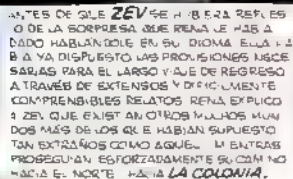 ANTES DE QUE ZEV SE HUBIERA REPUES
O DE LA SORPRESA QUE RENA LE HABIA
DADO HABLÁNDOLE EN SU IDIOMA ELLA HA
BIA YA DISPUESTO LAS PROVISIONES NECE
SARIAS PARA EL LARGO VIAJE DE REGRESO
A TRAVÉS DE EXTENSOS Y DIFICILMENTE
COMPRENSIBLES RELATOS RENA EXPLICO
A ZEV QUE EXISTIAN OTROS MUCHOS MUN
DOS MÁS DE LOS QUE HABIAN SUPUESTO
TAN EXTRAÑOS COMO AQUEL MIENTRAS
PROSEGUIAN ESFORZADAMENTE SU CAMINO
HACIA EL NORTE HACIA LA COLONIA.